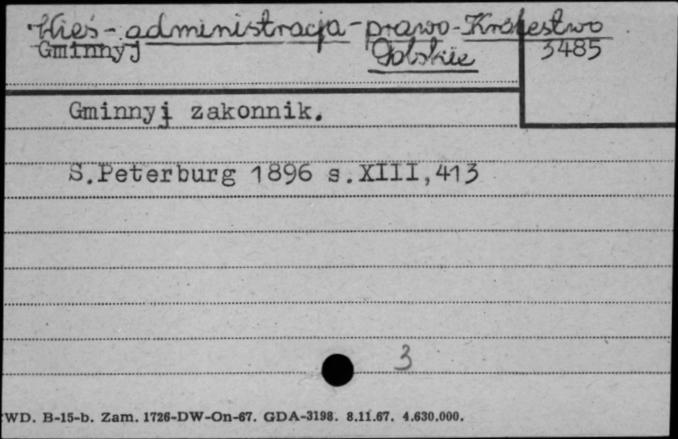 Wieś - administracja - prawo - Królestwo
Polskie
Gminnyj
3485
Gminnyj zakonnik.
S.Peterburg 1896 s.XIII,413
3
WD. B-15-b. Zam. 1726-DW-On-67. GDA-3198. 8.11.67. 4.630.000.